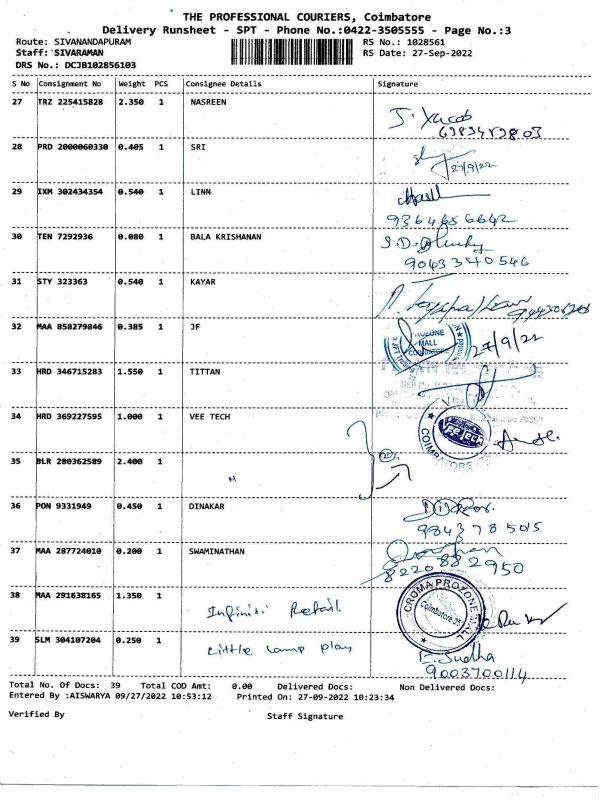 THE PROFESSIONAL COURIERS, Coimbatore
Delivery Runsheet - SPT - Phone No.:0422-3505555 - Page No.:3
Route: SIVANANDAPURAM RS No.: 1028561
Staff: SIVARAMAN RS Date: 27-Sep-2022
DRS No.: DCJB102856103
S No Consignment No Weight PCS Consignee Details Signature
27 TRZ 225415828 2.350 1 NASREEN
J. Yacob
6383483803
28 PRD 2000060330 0.405 1 SRI
27/9/22
29 IXM 302434354 0.540 1 LINN
9364656642
30 TEN 7292936 0.080 1 BALA KRISHANAN
9043340546
31 STY 323363 0.540 1 KAYAR
32 MAA 858279846 0.385 1 JF
PROZONE MALL COIMBATORE 27/9/22
33 HRD 346715283 1.550 1 TITTAN
34 HRD 369227595 1.000 1 VEE TECH
COIMBATORE
35 BLR 280362589 2.400 1 "
36 PON 9331949 0.450 1 DINAKAR
9843785015
37 MAA 287724010 0.200 1 SWAMINATHAN
8220882950
38 MAA 291638165 1.350 1 Infinisi Retail
CROMA PROZONE MALL Coimbatore-35
39 SLM 304107204 0.250 1 Little Lamp play
E. Sudha
9003700114
Total No. Of Docs: 39 Total COD Amt: 0.00 Delivered Docs: Non Delivered Docs:
Entered By :AISWARYA 09/27/2022 10:53:12 Printed On: 27-09-2022 10:23:34
Verified By Staff Signature